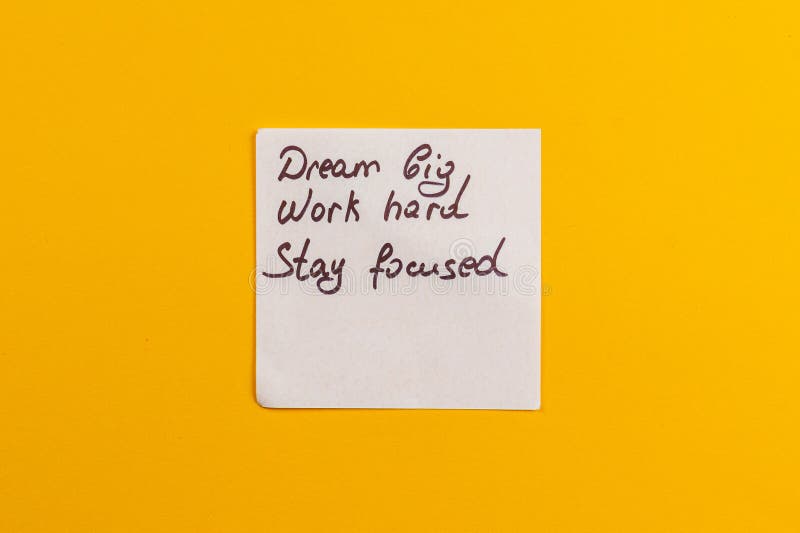 Dream big
Work hard
Stay focused